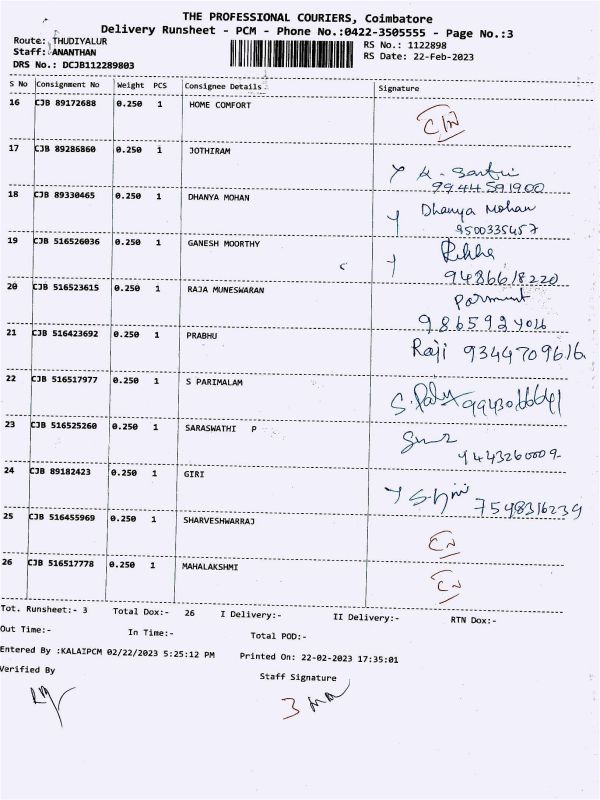 THE PROFESSIONAL COURIERS, Coimbatore
Delivery Runsheet - PCM - Phone No.:0422-3505555 - Page No.:3
Route: THUDIYALUR
RS No.: 1122898
Staff: ANANTHAN
RS Date: 22-Feb-2023
DRS No.: DCJB112289803
S No Consignment No Weight PCS Consignee Details Signature
16 CJB 89172688 0.250 1 HOME COMFORT
17 CJB 89286860 0.250 1 JOTHIRAM
9944591900
18 CJB 89330465 0.250 1 DHANYA MOHAN Dhanya Mohan
9500335457
19 CJB 516526036 0.250 1 GANESH MOORTHY Rikha
9486618220
20 CJB 516523615 0.250 1 RAJA MUNESWARAN
21 CJB 516423692 0.250 1 PRABHU Raji 9344709616
22 CJB 516517977 0.250 1 S PARIMALAM
23 CJB 516525260 0.250 1 SARASWATHI P
9443260009
24 CJB 89182423 0.250 1 GIRI 7548316239
25 CJB 516455969 0.250 1 SHARVESHWARRAJ
26 CJB 516517778 0.250 1 MAHALAKSHMI
Tot. Runsheet:- 3 Total Dox:- 26 I Delivery:- II Delivery:- RTN Dox:-
Out Time:- In Time:- Total POD:-
Entered By :KALAIPCM 02/22/2023 5:25:12 PM Printed On: 22-02-2023 17:35:01
Verified By Staff Signature
3